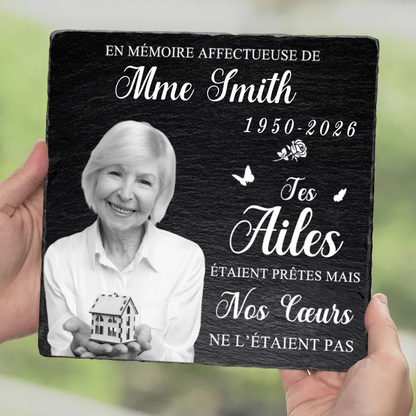 EN MÉMOIRE AFFECTUEUSE DE
Mme Smith
1950-2026
Tes
Ailes
ÉTAIENT PRÊTES MAIS
Nos Cœurs
NE L'ÉTAIENT PAS